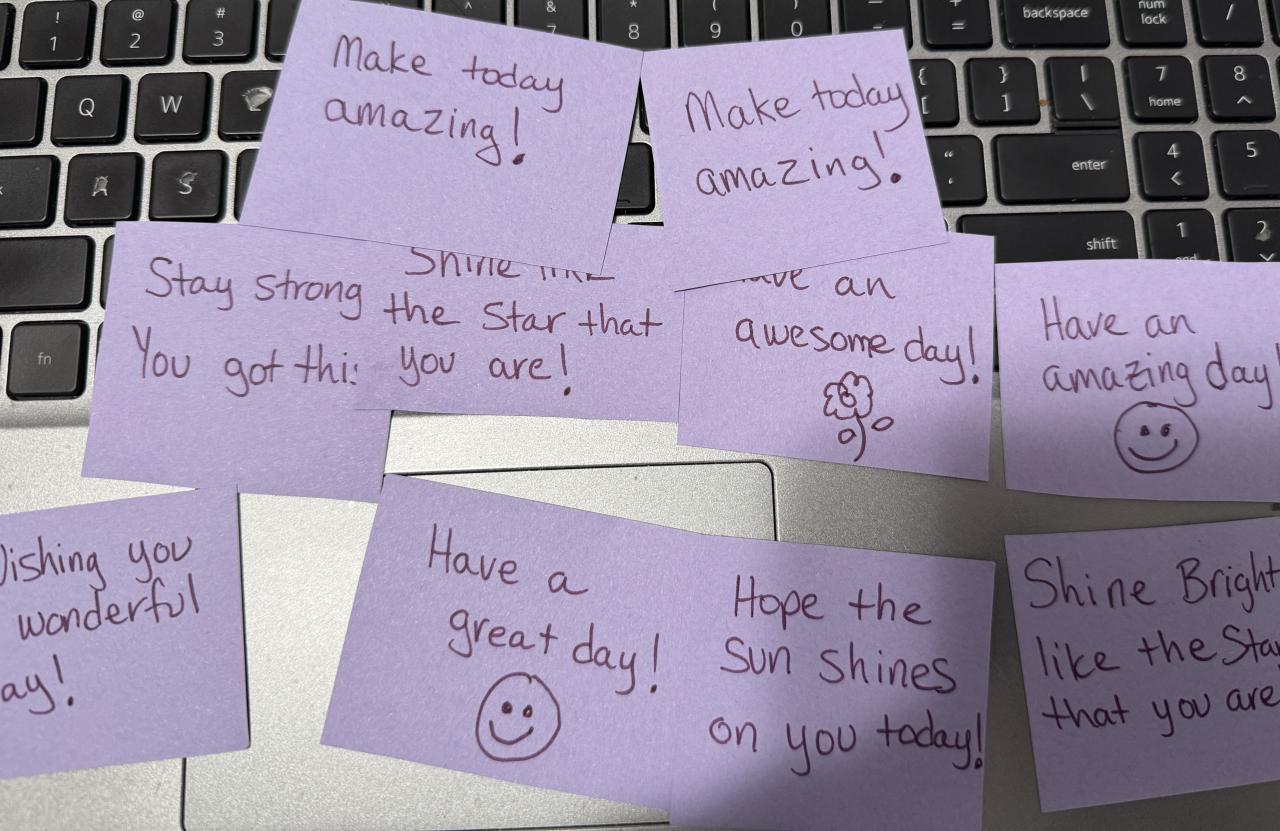 Make today
amazing!
Make today
amazing!
Stay strong
You got
Shine
the Star that
you are!
an
awesome day!
Have an
amazing day
you
wonderful
Have a
great day!
Hope the
Sun Shines
on you today!
Shine Bright
like the
that you are
!
1
@
2
#
3
&
7
*
8
(
9
)
0
+
=
backspace
num
lock
/
Q
W
{
[
}
]
\
7
home
8
^
A
S
enter
4
<
5
shift
1
2
fn